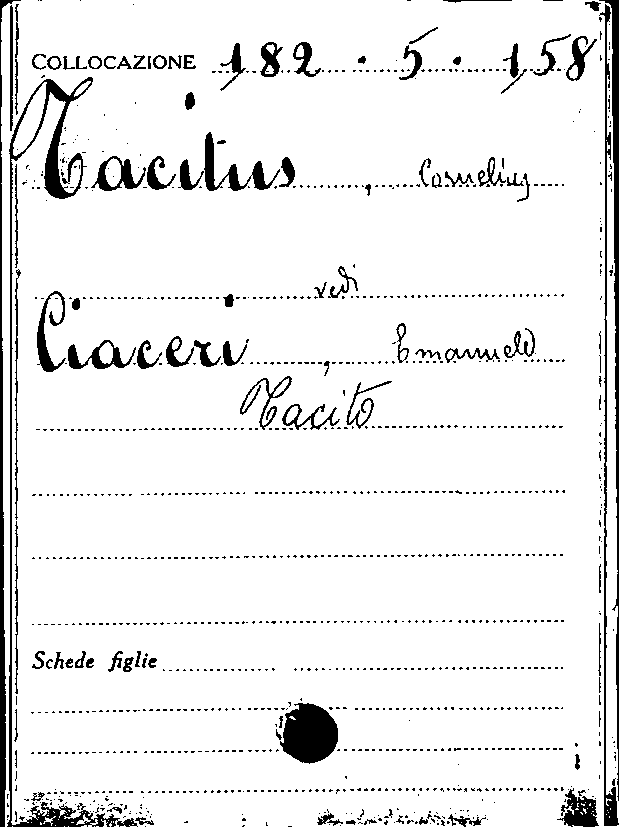 COLLOCAZIONE 182 . 5 . 158
Tacitus , Cornelius
vedi
Ciaceri , Emanuele
Tacito
Schede figlie